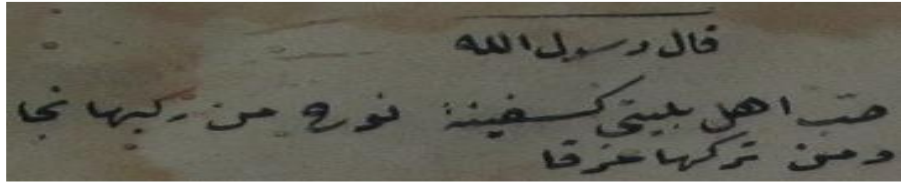 قال رسول الله
حب اهل بيتي كسفينة نوح من ركبها نجا
ومن تركها غرقا